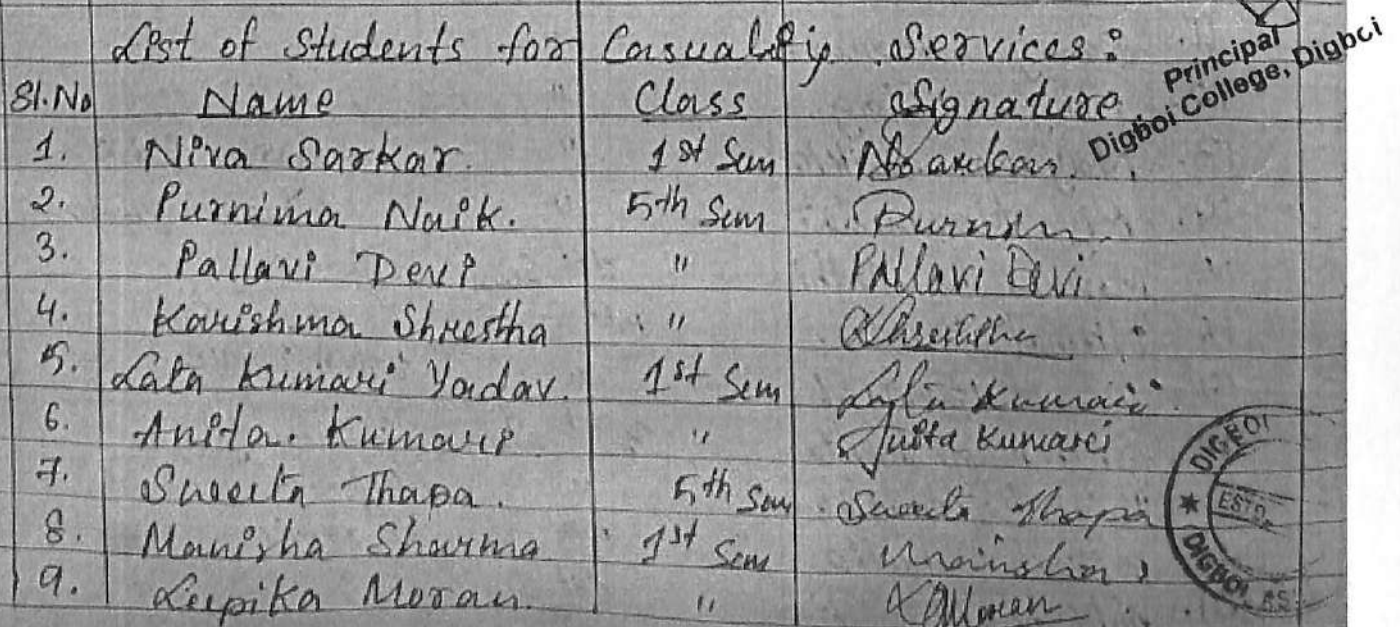 List of Students for Casuality Services:
Principal
Digboi College, Digboi
Sl.No Name Class Signature
1. Nira Sarkar. 1st Sem
2. Purnima Naik. 5th Sem
3. Pallavi Devi " Pallavi Devi
4. Karishma Shrestha "
5. Lata Kumari Yadav. 1st Sem Lata Kumari
6. Anita. Kumari " Anita Kumari
7. Sweeta Thapa. 5th Sem Sweeta Thapa
8. Manisha Sharma 1st Sem Manisha
9. Leepika Moran. "
DIGBOI
ESTD.
DIGBOI